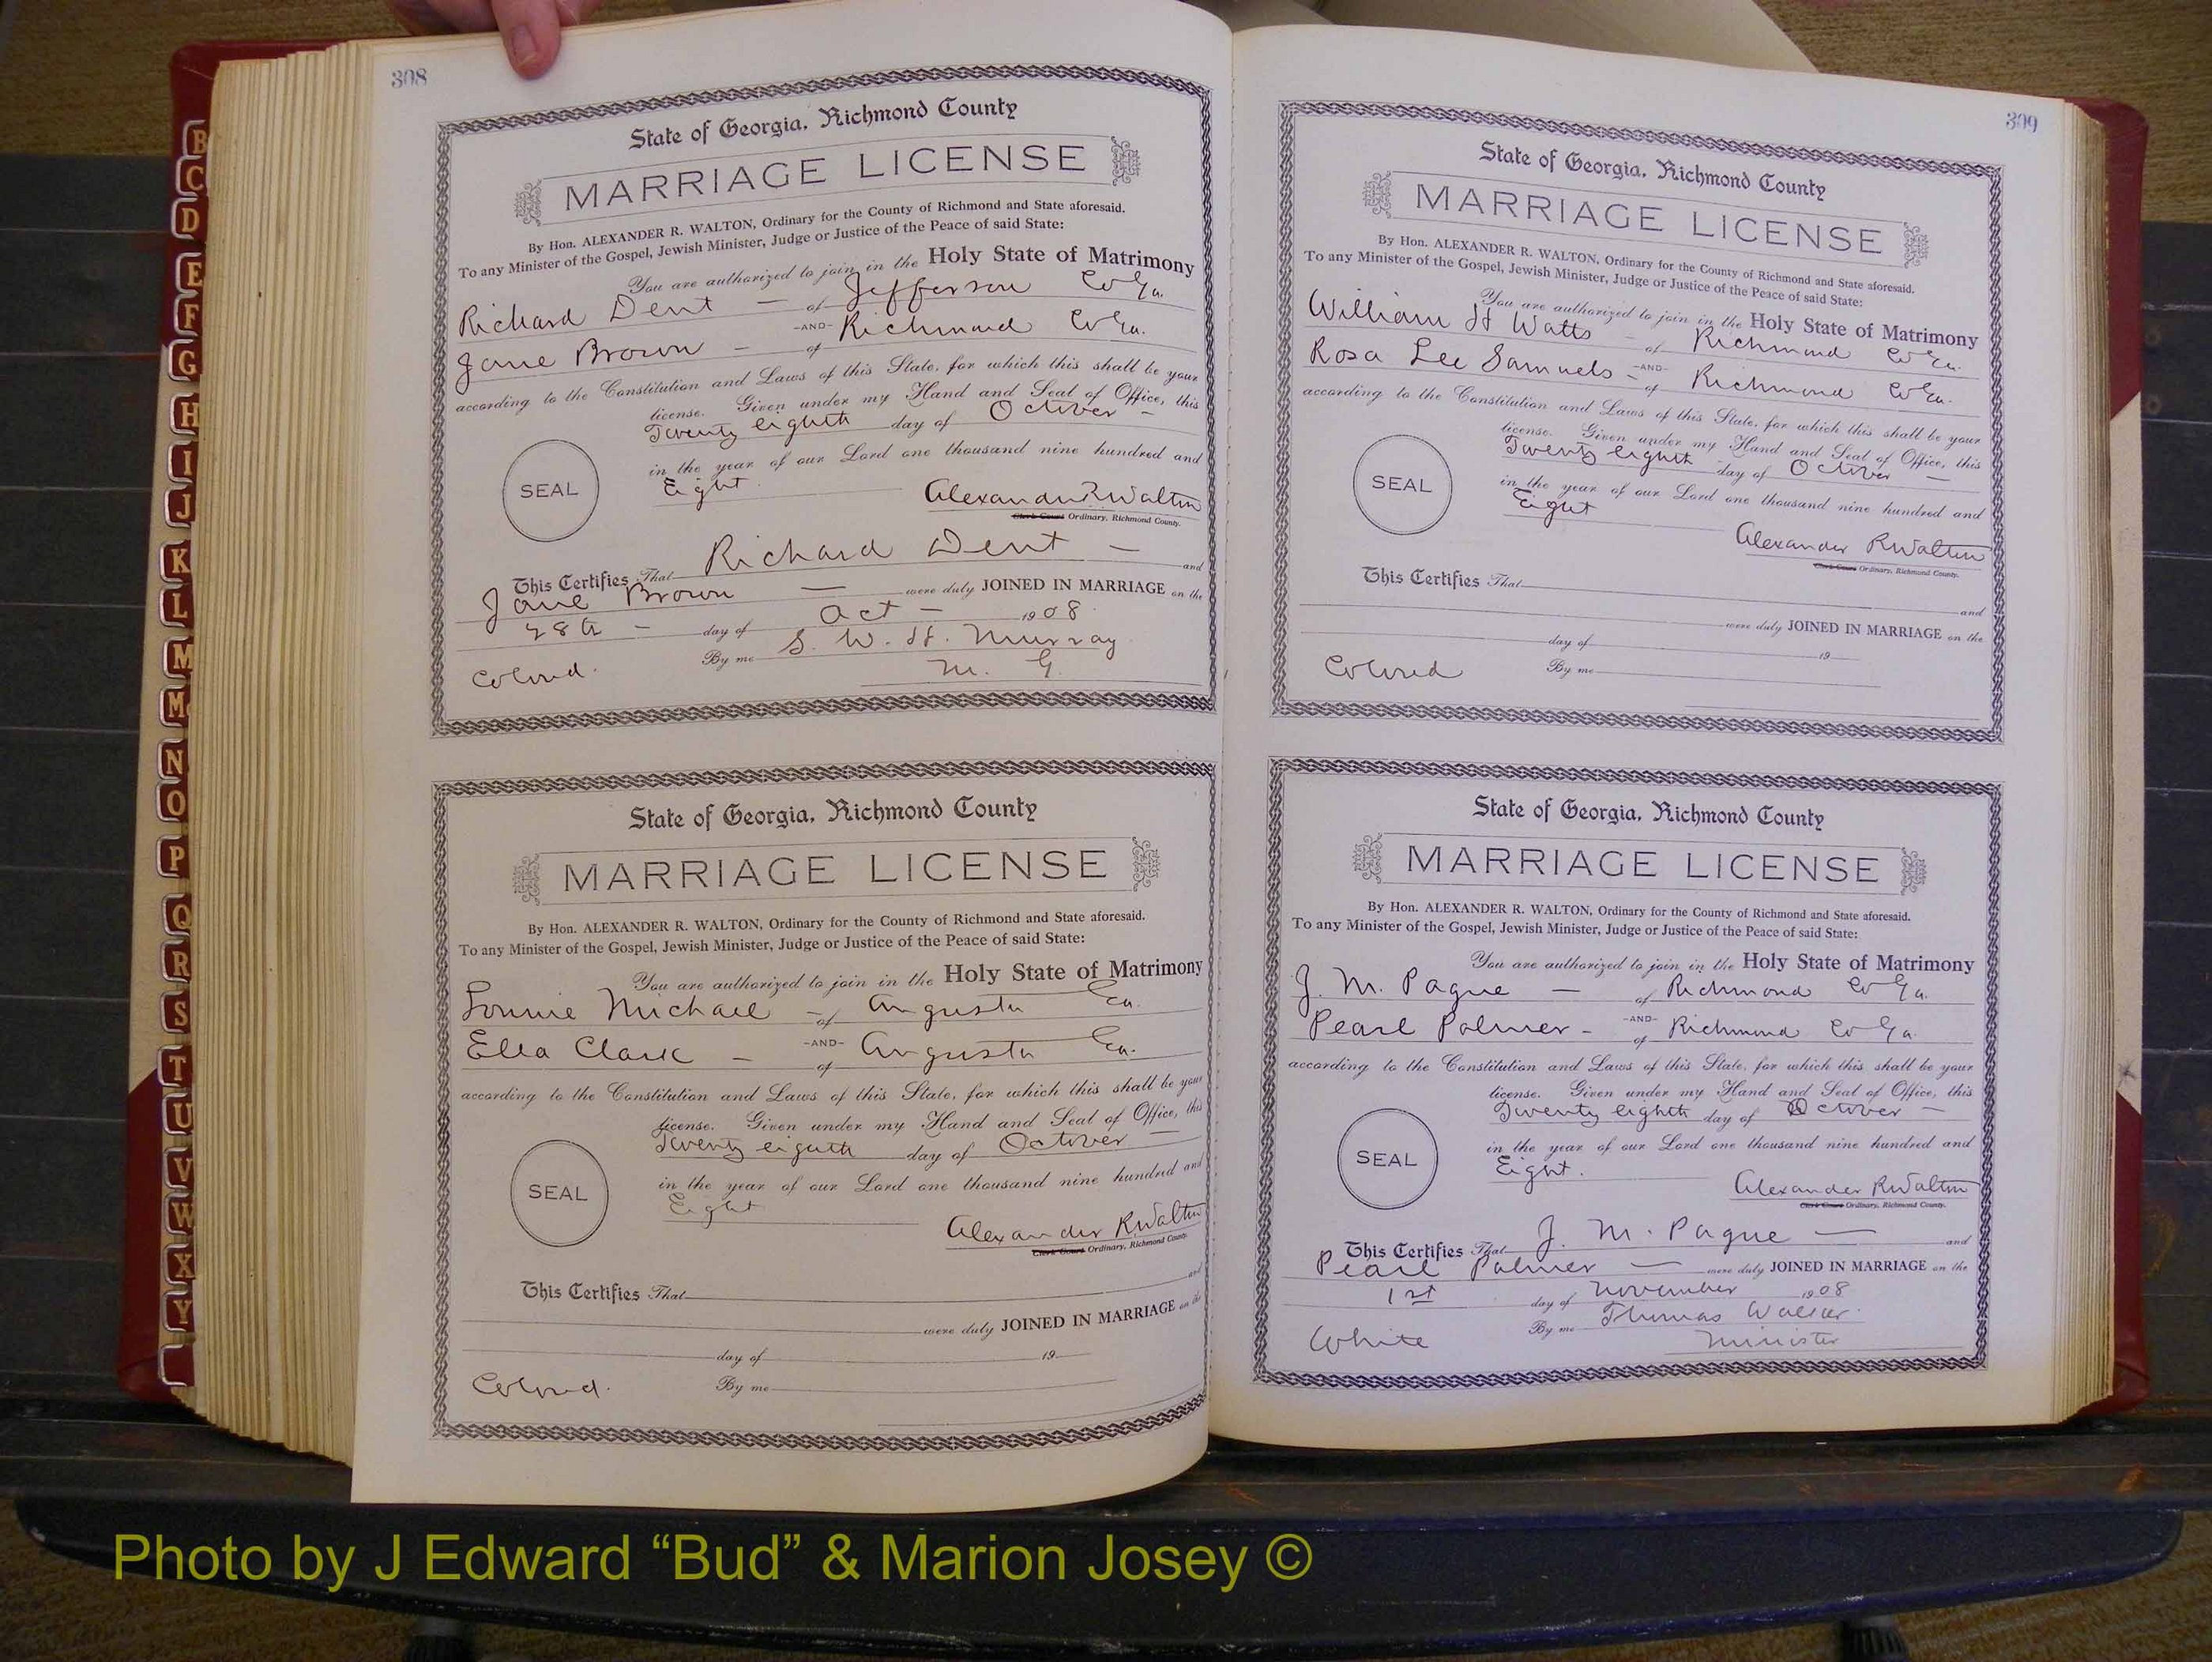 308
State of Georgia, Richmond County
MARRIAGE LICENSE
By Hon. ALEXANDER R. WALTON, Ordinary for the County of Richmond and State aforesaid.
To any Minister of the Gospel, Jewish Minister, Judge or Justice of the Peace of said State:
You are authorized to join in the Holy State of Matrimony
Richard Dent — of Jefferson Co Ga.
-AND-
Jane Brown — of Richmond Co Ga.
according to the Constitution and Laws of this State, for which this shall be your
license. Given under my Hand and Seal of Office, this
Twenty eighth day of October —
in the year of our Lord one thousand nine hundred and
Eight.
SEAL
Alexander R Walton
Clerk Court Ordinary, Richmond County.
This Certifies That Richard Dent — and
Jane Brown — were duly JOINED IN MARRIAGE on the
28th — day of Oct — 1908.
By me S. W. H. Murray
Colored. M. G.
State of Georgia, Richmond County
MARRIAGE LICENSE
By Hon. ALEXANDER R. WALTON, Ordinary for the County of Richmond and State aforesaid.
To any Minister of the Gospel, Jewish Minister, Judge or Justice of the Peace of said State:
You are authorized to join in the Holy State of Matrimony
Lonnie Michael — of Augusta Ga.
-AND-
Ella Clark — of Augusta Ga.
according to the Constitution and Laws of this State, for which this shall be your
license. Given under my Hand and Seal of Office, this
Twenty eighth day of October —
in the year of our Lord one thousand nine hundred and
Eight
SEAL
Alexander R Walton
Clerk Court Ordinary, Richmond County.
This Certifies That and
were duly JOINED IN MARRIAGE on the
day of 19
Colored. By me
309
State of Georgia, Richmond County
MARRIAGE LICENSE
By Hon. ALEXANDER R. WALTON, Ordinary for the County of Richmond and State aforesaid.
To any Minister of the Gospel, Jewish Minister, Judge or Justice of the Peace of said State:
You are authorized to join in the Holy State of Matrimony
William H Watts — of Richmond Co Ga.
-AND-
Rosa Lee Samuels — of Richmond Co Ga.
according to the Constitution and Laws of this State, for which this shall be your
license. Given under my Hand and Seal of Office, this
Twenty eighth day of October —
in the year of our Lord one thousand nine hundred and
Eight
SEAL
Alexander R Walton
Clerk Court Ordinary, Richmond County.
This Certifies That and
were duly JOINED IN MARRIAGE on the
day of 19
Colored By me
State of Georgia, Richmond County
MARRIAGE LICENSE
By Hon. ALEXANDER R. WALTON, Ordinary for the County of Richmond and State aforesaid.
To any Minister of the Gospel, Jewish Minister, Judge or Justice of the Peace of said State:
You are authorized to join in the Holy State of Matrimony
J. M. Pague — of Richmond Co Ga.
-AND-
Pearl Palmer — of Richmond Co Ga.
according to the Constitution and Laws of this State, for which this shall be your
license. Given under my Hand and Seal of Office, this
Twenty eighth day of October —
in the year of our Lord one thousand nine hundred and
Eight.
SEAL
Alexander R Walton
Clerk Court Ordinary, Richmond County.
This Certifies That J. M. Pague — and
Pearl Palmer — were duly JOINED IN MARRIAGE on the
1st day of November 1908
By me Thomas Walker.
White Minister
B
C
D
E
F
G
H
I
J
K
L
M
Mc
N
O
P
Q
R
S
T
U
V
W
X
Y
Photo by J Edward “Bud” & Marion Josey ©